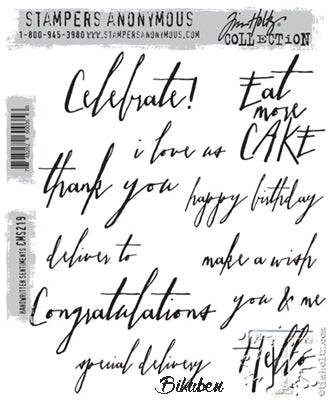 STAMPERS ANONYMOUS
1-800-945-3980 WWW.STAMPERSANONYMOUS.COM
Tim Holtz
COLLECTION
Celebrate!
Eat
more
CAKE
i love us
thank you
happy birthday
HANDWRITTEN SENTIMENTS CMS219
deliver to
make a wish
Congratulations
you & me
Hello
special delivery
Bikuben
©timholtz.com